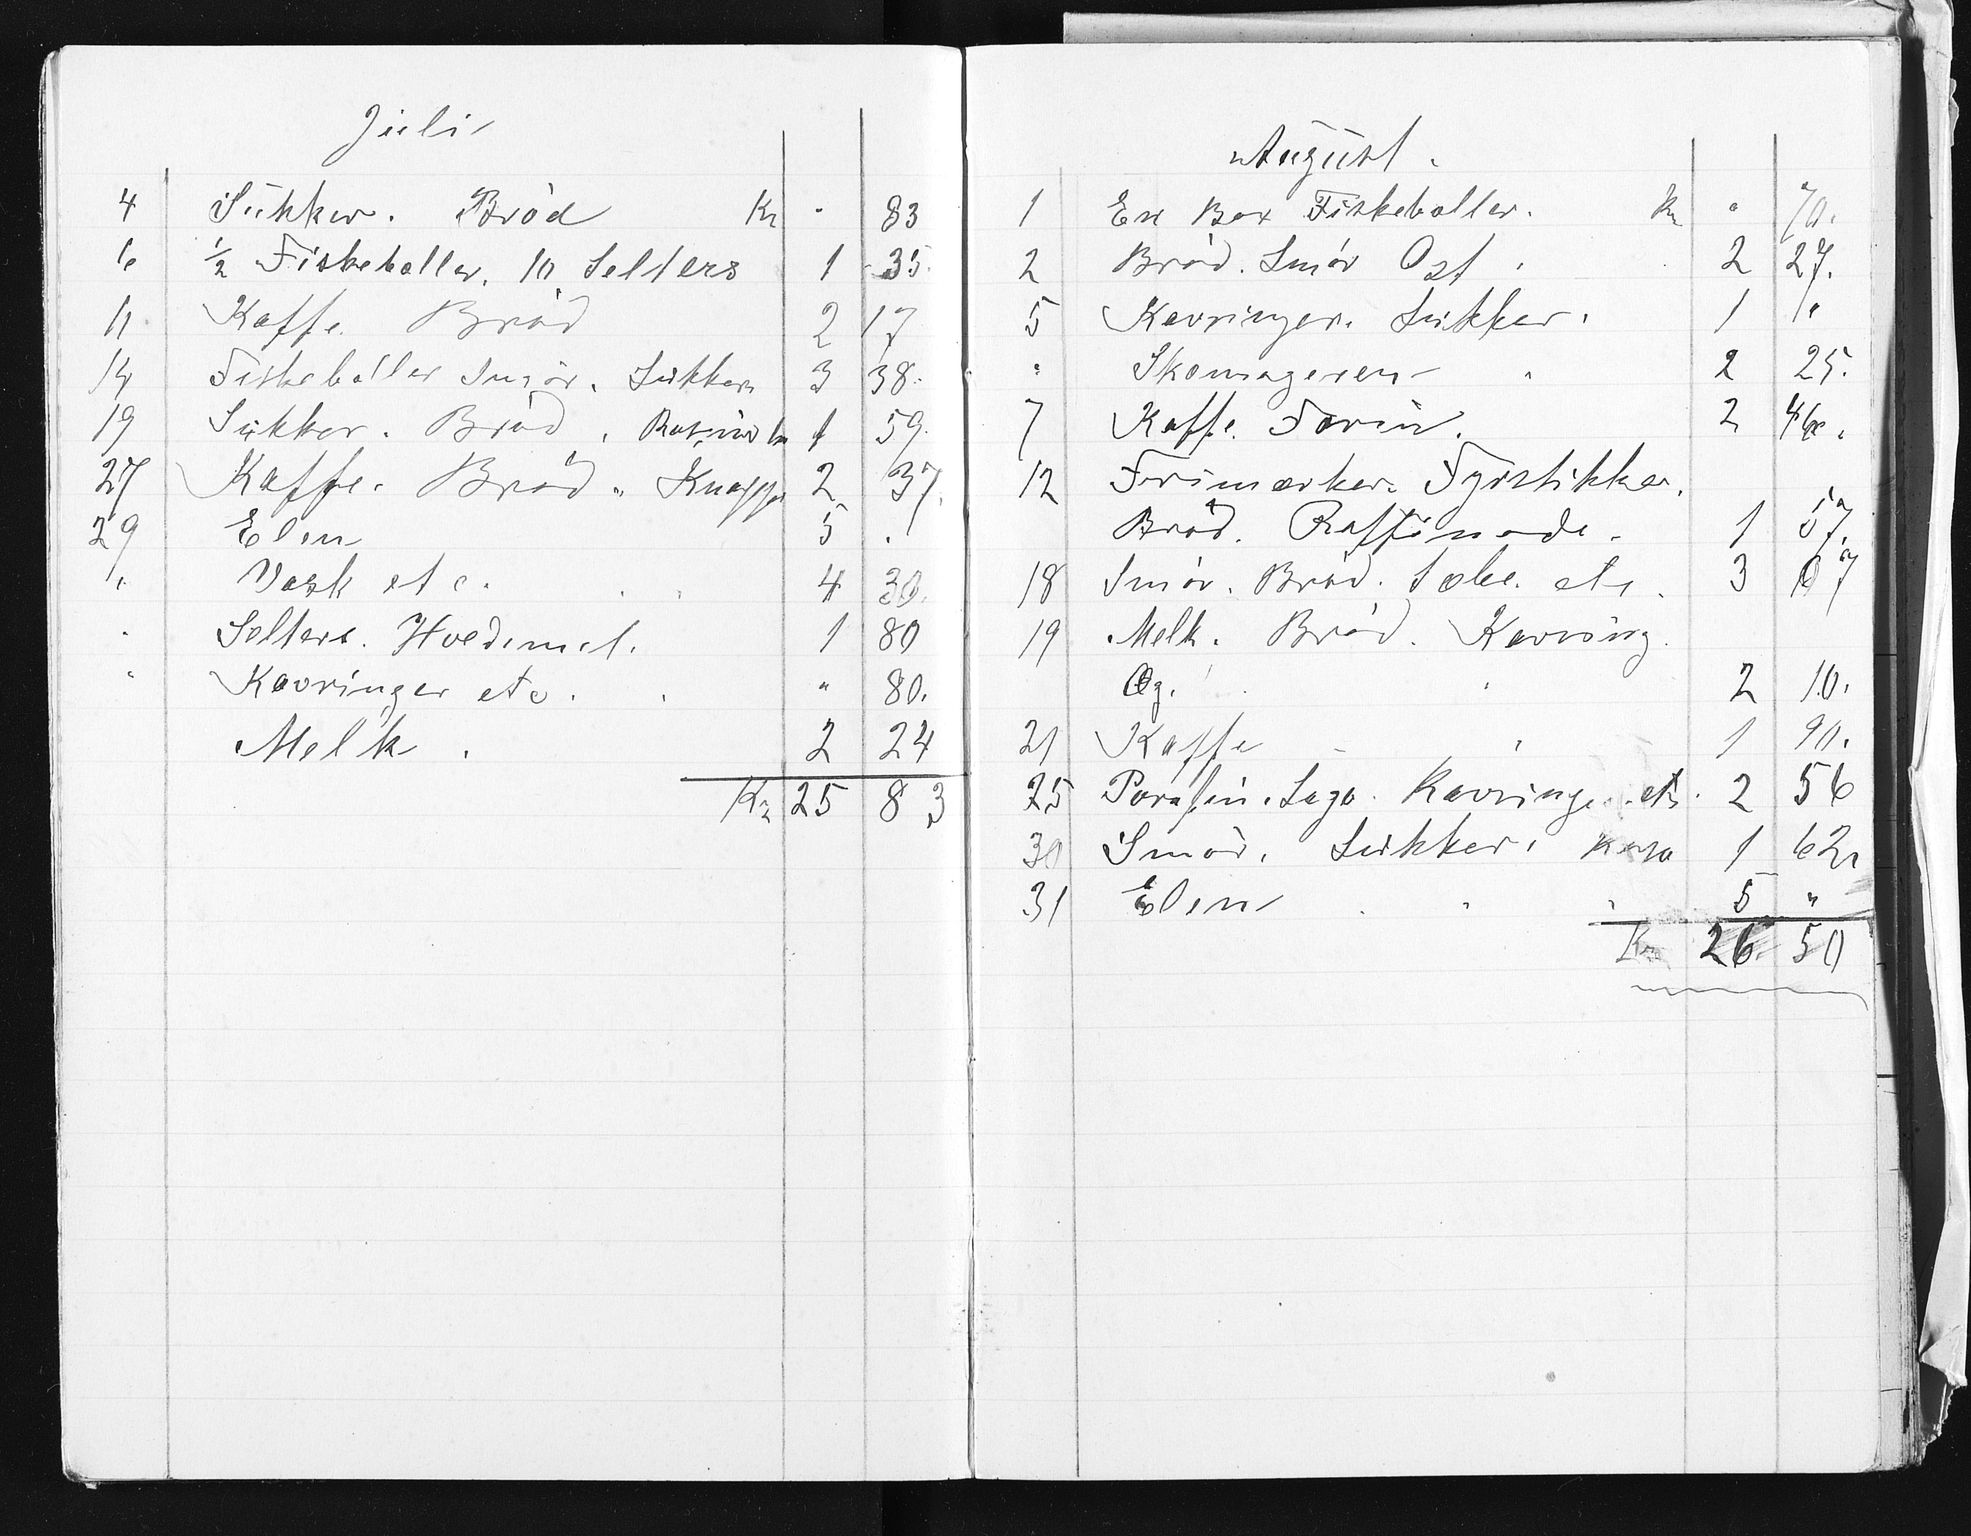 Juli
4 Sukker. Brød Kr " 83
6 ½ Fiskeboller. 10 Selters 1 35.
11 Kaffe. Brød 2 17
14 Fiskeboller Smør. Sukker 3 38.
19 Sukker. Brød. 1 59.
27 Kaffe. Brød. Knapper 2 37.
29 Elen 5 .
" Vask etc. 4 30.
" Selters. Hvedemel. 1 80
" Kavringer etc. " 80.
Melk . 2 24
Kr 25 83
August.
1 En Box Fiskeboller. Kr " 70.
2 Brød. Smør Ost . 2 27.
5 Kavringer. Sukker. 1 "
" Skomageren " 2 25.
7 Kaffe. Farin. 2 46.
12 Frimærker. Fyrstikker.
Brød. Raffinade. 1 57.
18 Smør. Brød. Sæbe. etc. 3 07
19 Melk. Brød. Kavring.
Æg. " 2 10.
21 Kaffe " 1 90.
25 Parafin. Sago. Kavringe. etc. 2 56
30 Smør. Sukker. 1 62.
31 Elen " 5 "
Kr 26 50